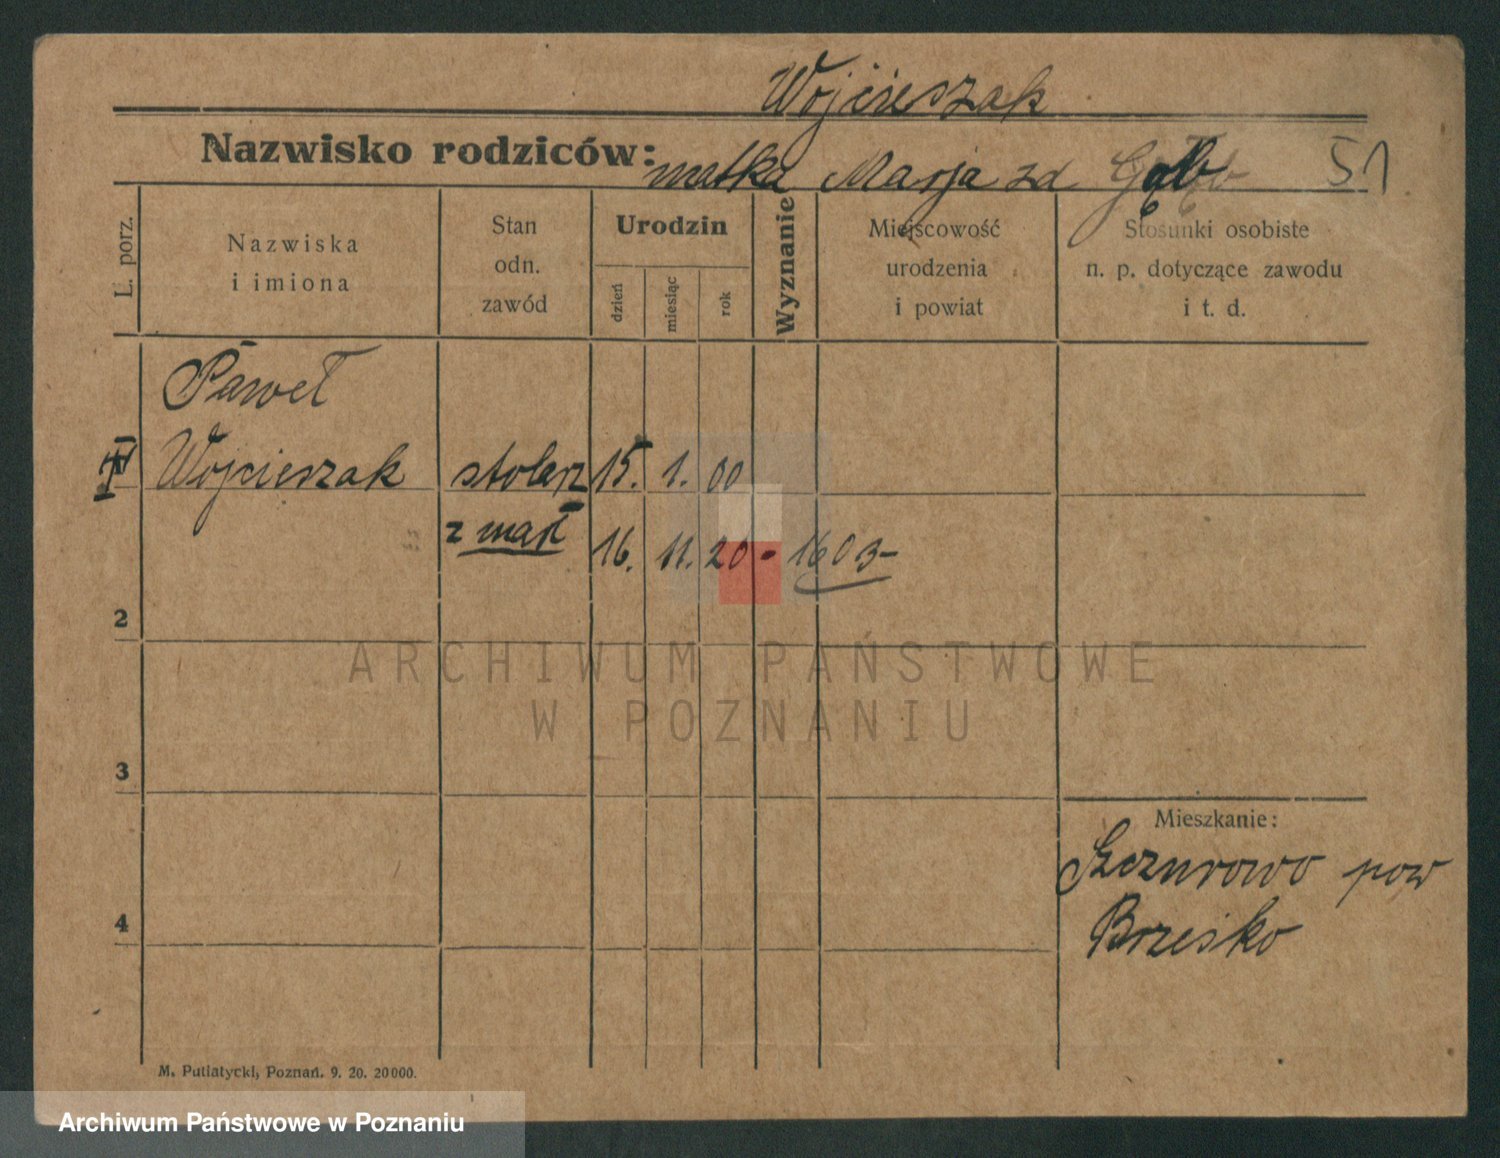 Wojcieszak
Nazwisko rodziców: matka Marja zd Gołąb 51
L. porz.
Nazwiska
i imiona
Stan
odn.
zawód
Urodzin
dzień
miesiąc
rok
Wyznanie
Miejscowość
urodzenia
i powiat
Stosunki osobiste
n. p. dotyczące zawodu
i t. d.
Paweł
Wojcieszak stolarz 15. 1. 00
zmarł 16. 11. 20 - 1603 -
2
ARCHIWUM PAŃSTWOWE
W POZNANIU
3
Mieszkanie:
Szczurowo pow
4
Brzesko
M. Putiatycki, Poznań. 9. 20. 20000.
Archiwum Państwowe w Poznaniu